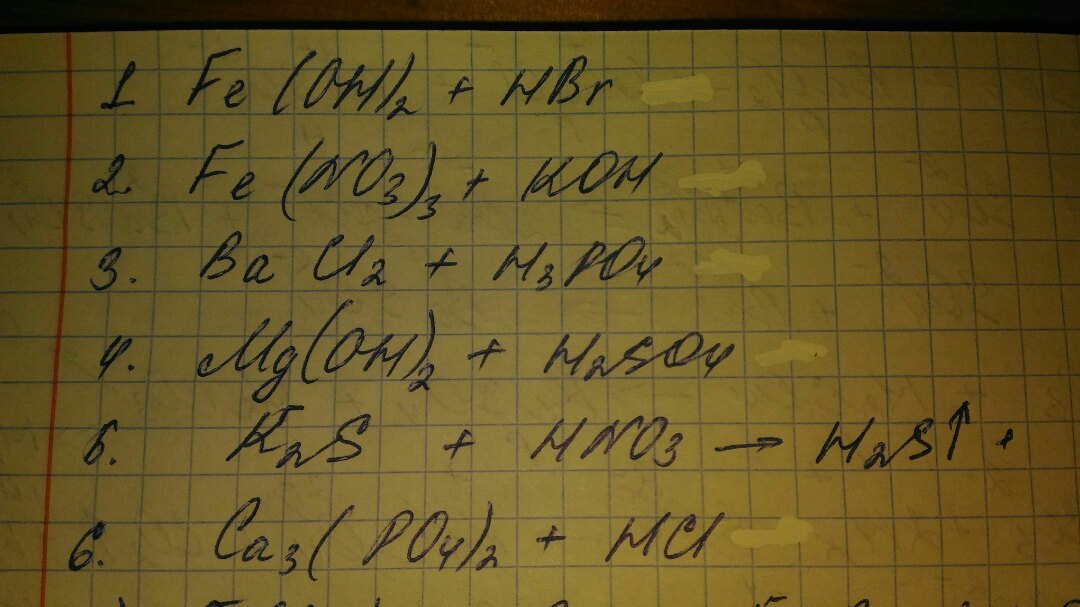 1 Fe(OH)2 + HBr
2. Fe(NO3)3 + KOH
3. BaCl2 + H3PO4
4. Mg(OH)2 + H2SO4
5. K2S + HNO3 → H2S↑ +
6. Ca3(PO4)2 + HCl